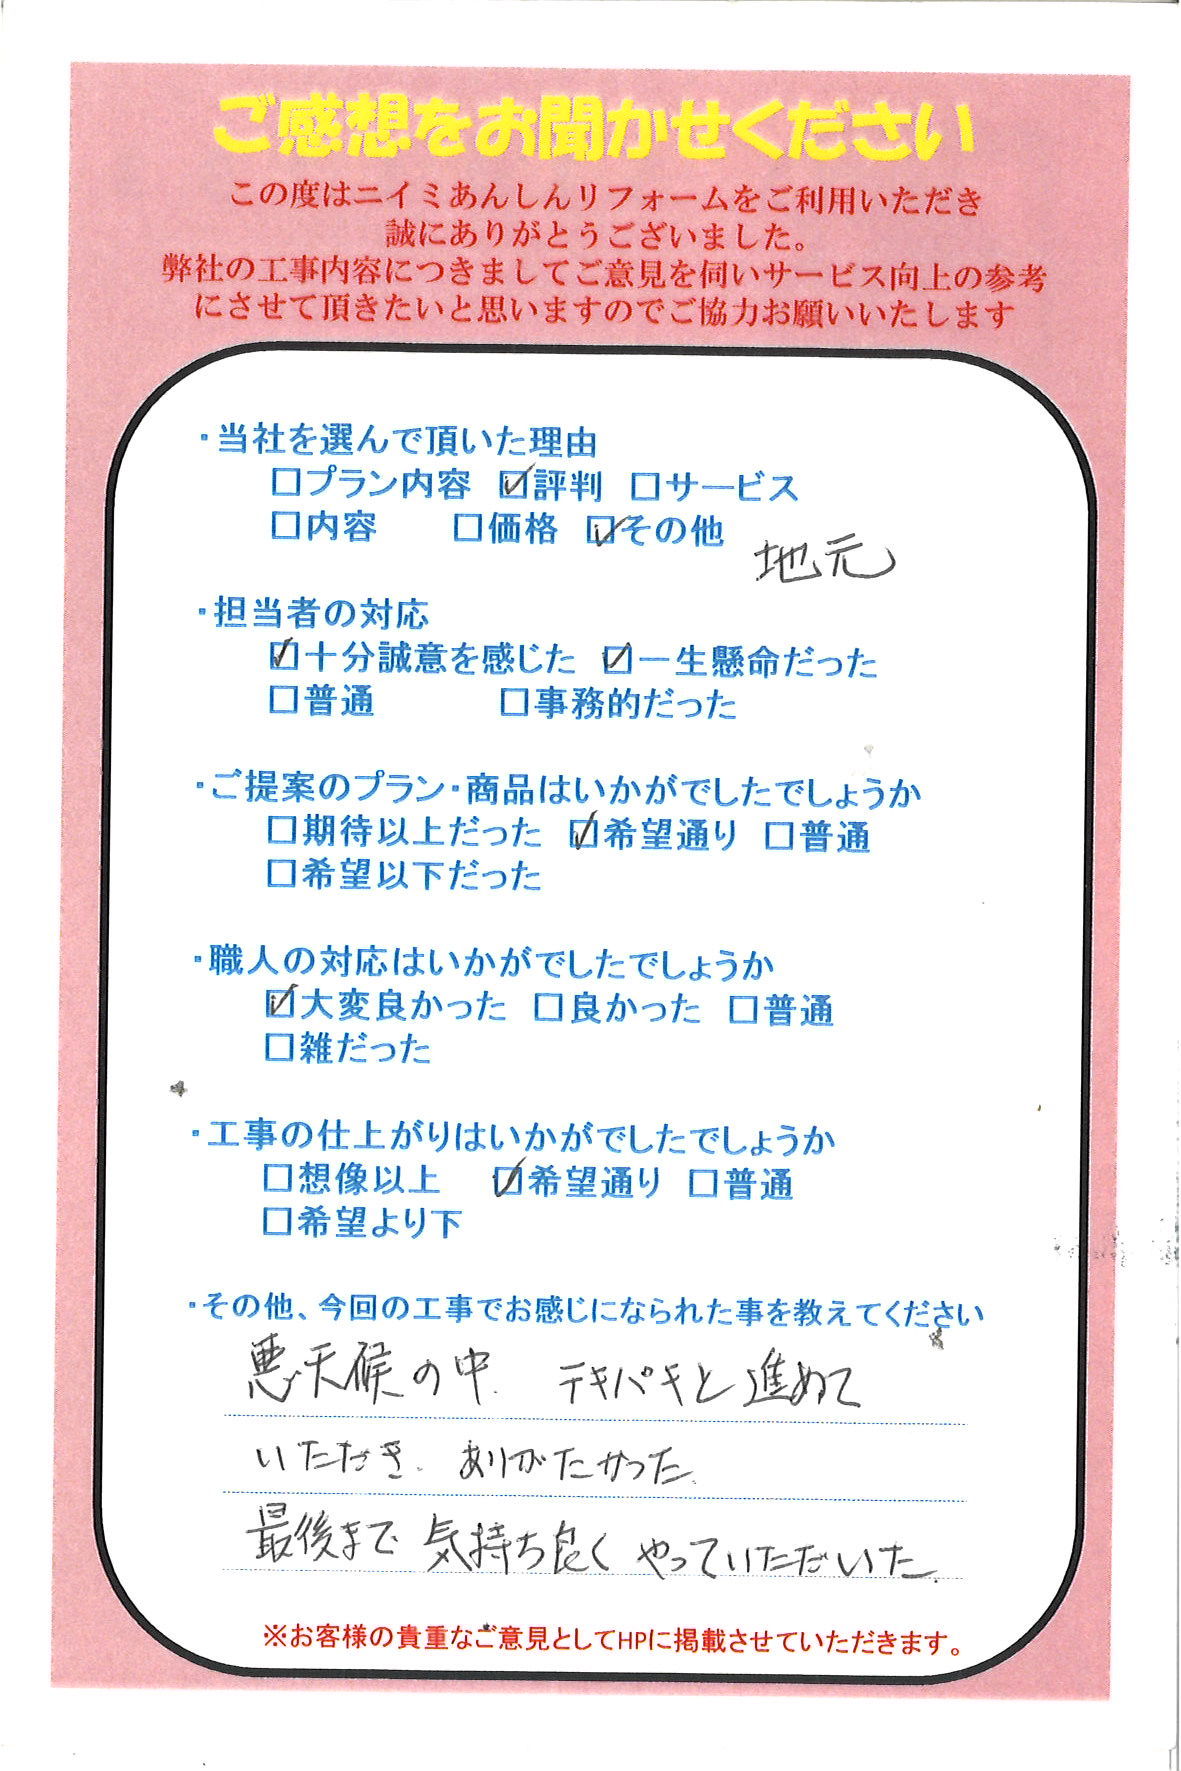 ご感想をお聞かせください
この度はニイミあんしんリフォームをご利用いただき
誠にありがとうございました。
弊社の工事内容につきましてご意見を伺いサービス向上の参考
にさせて頂きたいと思いますのでご協力お願いいたします
・当社を選んで頂いた理由
□プラン内容 ☑評判 □サービス
□内容 □価格 ☑その他
地元
・担当者の対応
☑十分誠意を感じた ☑一生懸命だった
□普通 □事務的だった
・ご提案のプラン・商品はいかがでしたでしょうか
□期待以上だった ☑希望通り □普通
□希望以下だった
・職人の対応はいかがでしたでしょうか
☑大変良かった □良かった □普通
□雑だった
・工事の仕上がりはいかがでしたでしょうか
□想像以上 ☑希望通り □普通
□希望より下
・その他、今回の工事でお感じになられた事を教えてください
悪天候の中、テキパキと進めて
いただき、ありがたかった。
最後まで気持ち良くやっていただいた。
※お客様の貴重なご意見としてHPに掲載させていただきます。